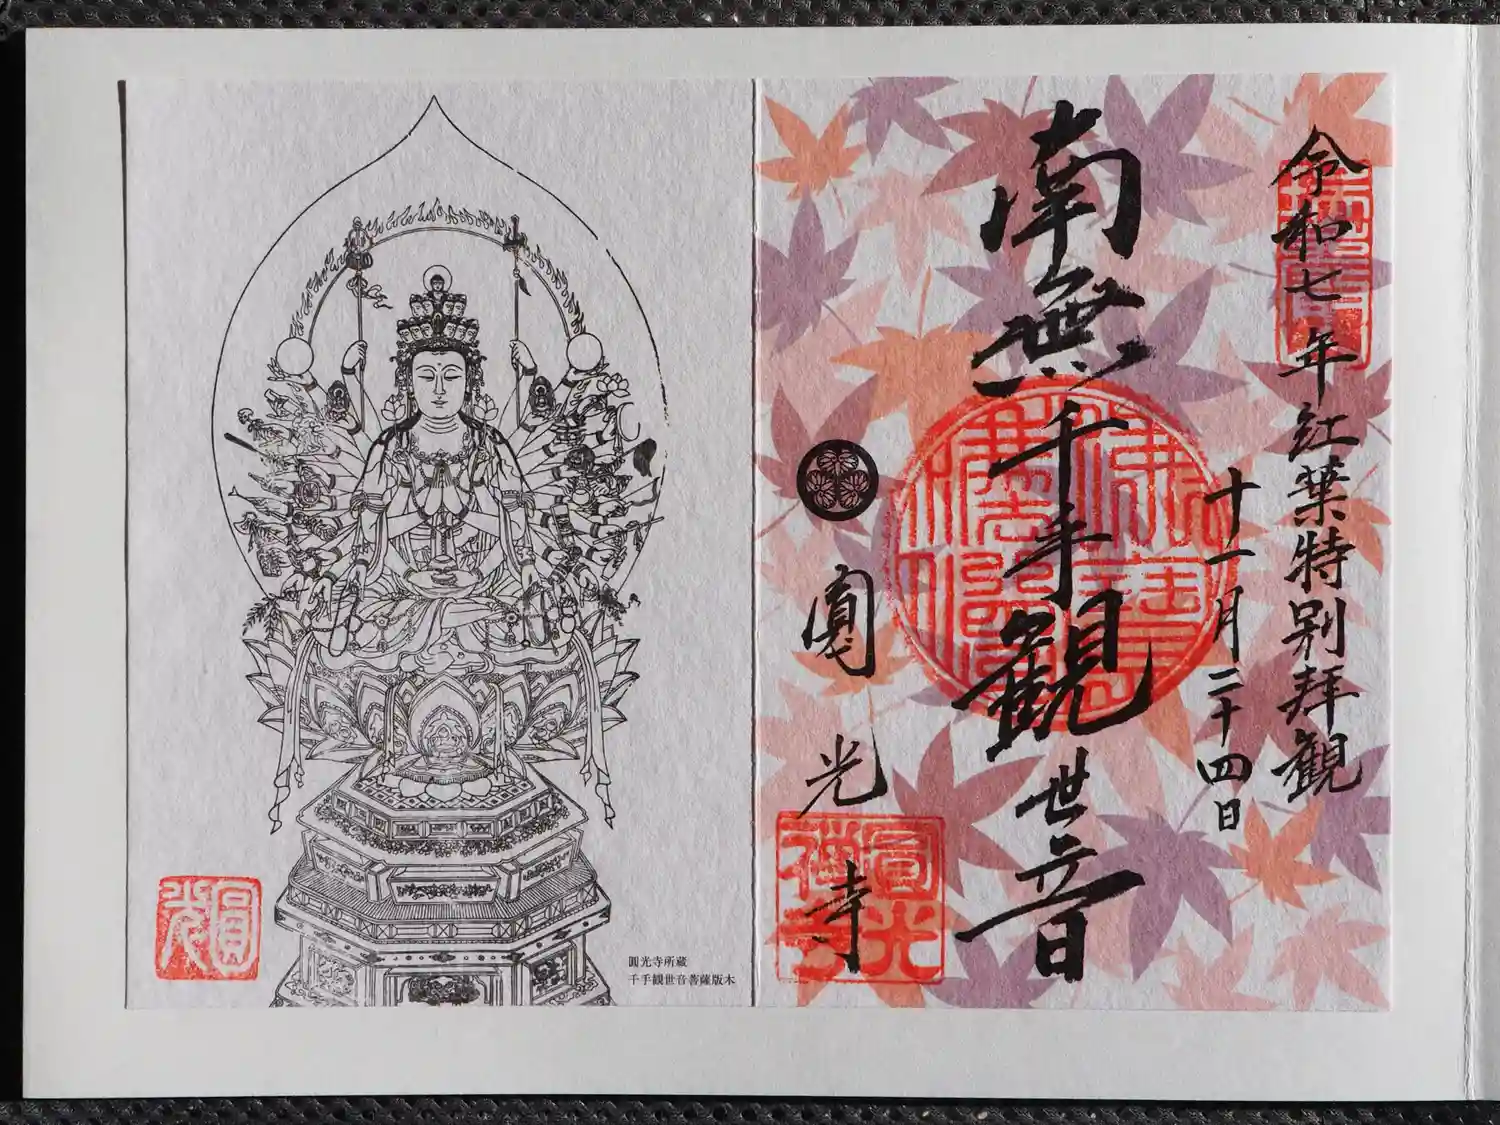 令和七年紅葉特別拝観
十一月二十四日
南無千手観世音
圓光寺
圓光禅寺
圓光
圓光寺所蔵
千手観世音菩薩版木